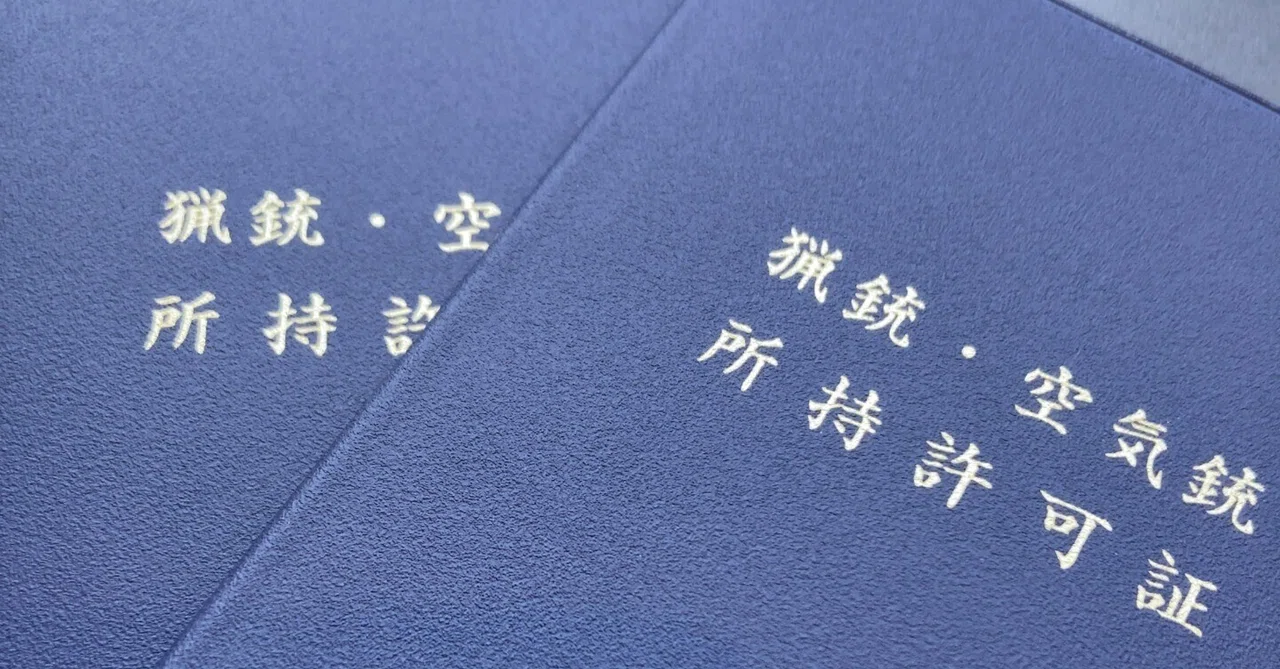 猟銃・空
所持許
猟銃・空気銃
所持許可証